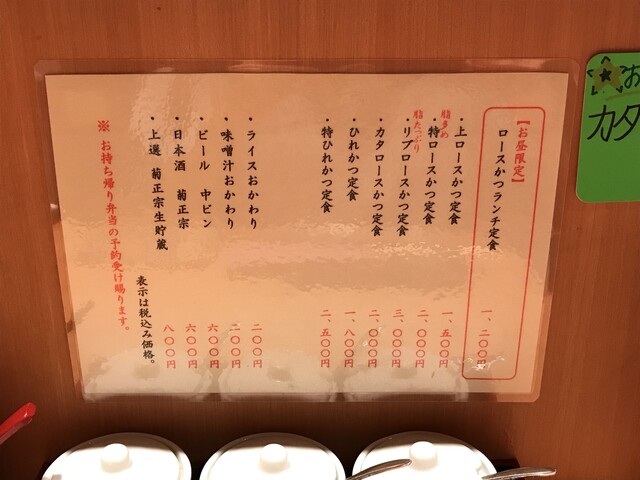 【お昼限定】
ロースかつランチ定食 一、二〇〇円
・上ロースかつ定食 一、五〇〇円
脂多め
・特ロースかつ定食 二、〇〇〇円
脂たっぷり
・リブロースかつ定食 三、〇〇〇円
・カタロースかつ定食 二、〇〇〇円
・ひれかつ定食 一、八〇〇円
・特ひれかつ定食 二、五〇〇円
・ライスおかわり 二〇〇円
・味噌汁おかわり 二〇〇円
・ビール 中ビン 六〇〇円
・日本酒 菊正宗 六〇〇円
・上選 菊正宗生貯蔵 八〇〇円
表示は税込み価格。
※ お持ち帰り弁当の予約受け賜ります。
お
カタ